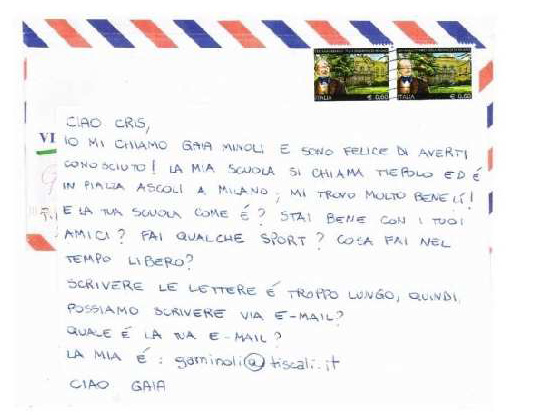 ITALIA € 0,60 ITALIA € 0,60
CIAO CRIS,
VI
IO MI CHIAMO GAIA MINOLI E SONO FELICE DI AVERTI
CONOSCIUTO! LA MIA SCUOLA SI CHIAMA TIEPOLO ED É
IN PIAZZA ASCOLI A MILANO; MI TROVO MOLTO BENE LÍ!
E LA TUA SCUOLA COME É? STAI BENE CON I TUOI
AMICI? FAI QUALCHE SPORT? COSA FAI NEL
TEMPO LIBERO?
SCRIVERE LE LETTERE É TROPPO LUNGO, QUINDI,
POSSIAMO SCRIVERE VIA E-MAIL?
QUALE É LA TUA E-MAIL?
LA MIA É: gaminoli@tiscali.it
CIAO GAIA